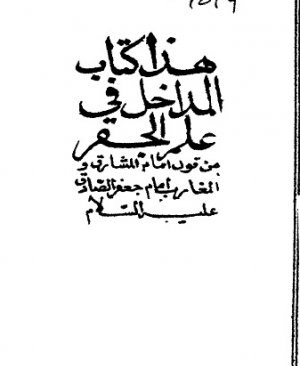 هذا كتاب
المداخل في
علم الحفر
من قول امام المشارق و
المغارب امام جعفر الصادق
عليه السلام